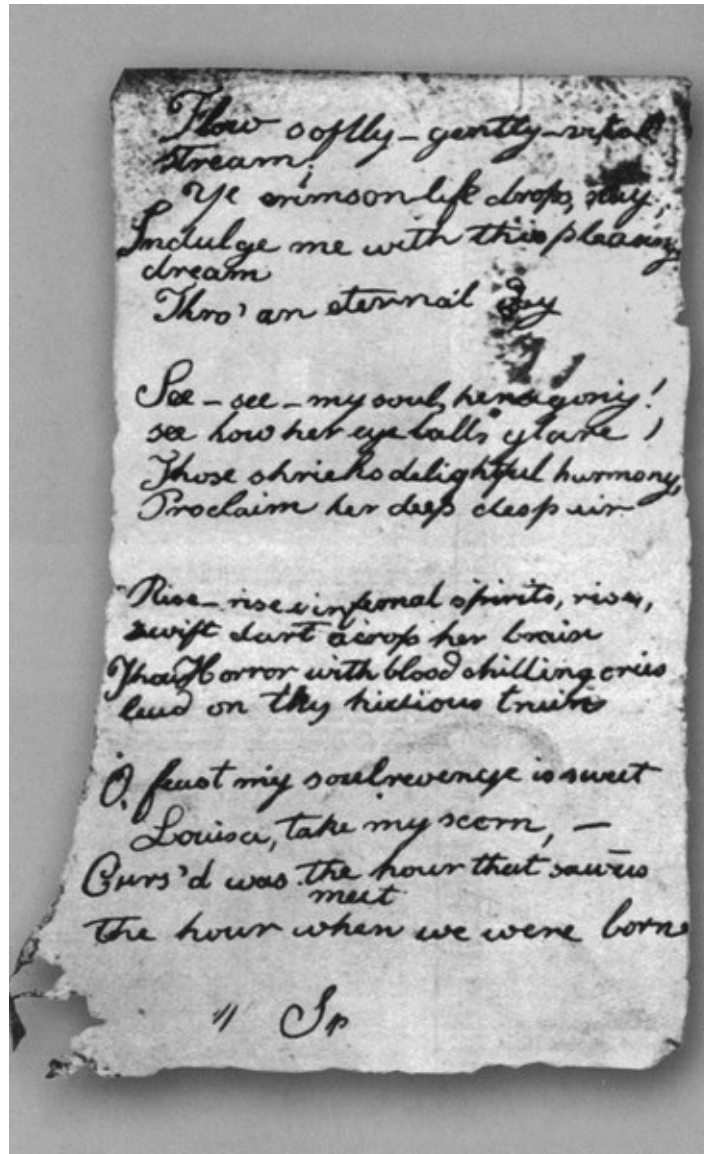 Flow softly – gently – vital
stream;
Ye crimson life drops, stay,
Indulge me with this pleasing
dream
Thro' an eternal Day
See – see – my soul, her agony!
see how her eye balls glare!
Those shrieks delightful harmony,
Proclaim her deep despair
Rise – rise infernal spirits, rise,
swift dart across her brain
Thou Horror with blood chilling cries
lead on thy hidious train
O, feast my soul revenge is sweet
Louisa, take my scorn, –
Curs'd was the hour that saw us
meet
the hour when we were born